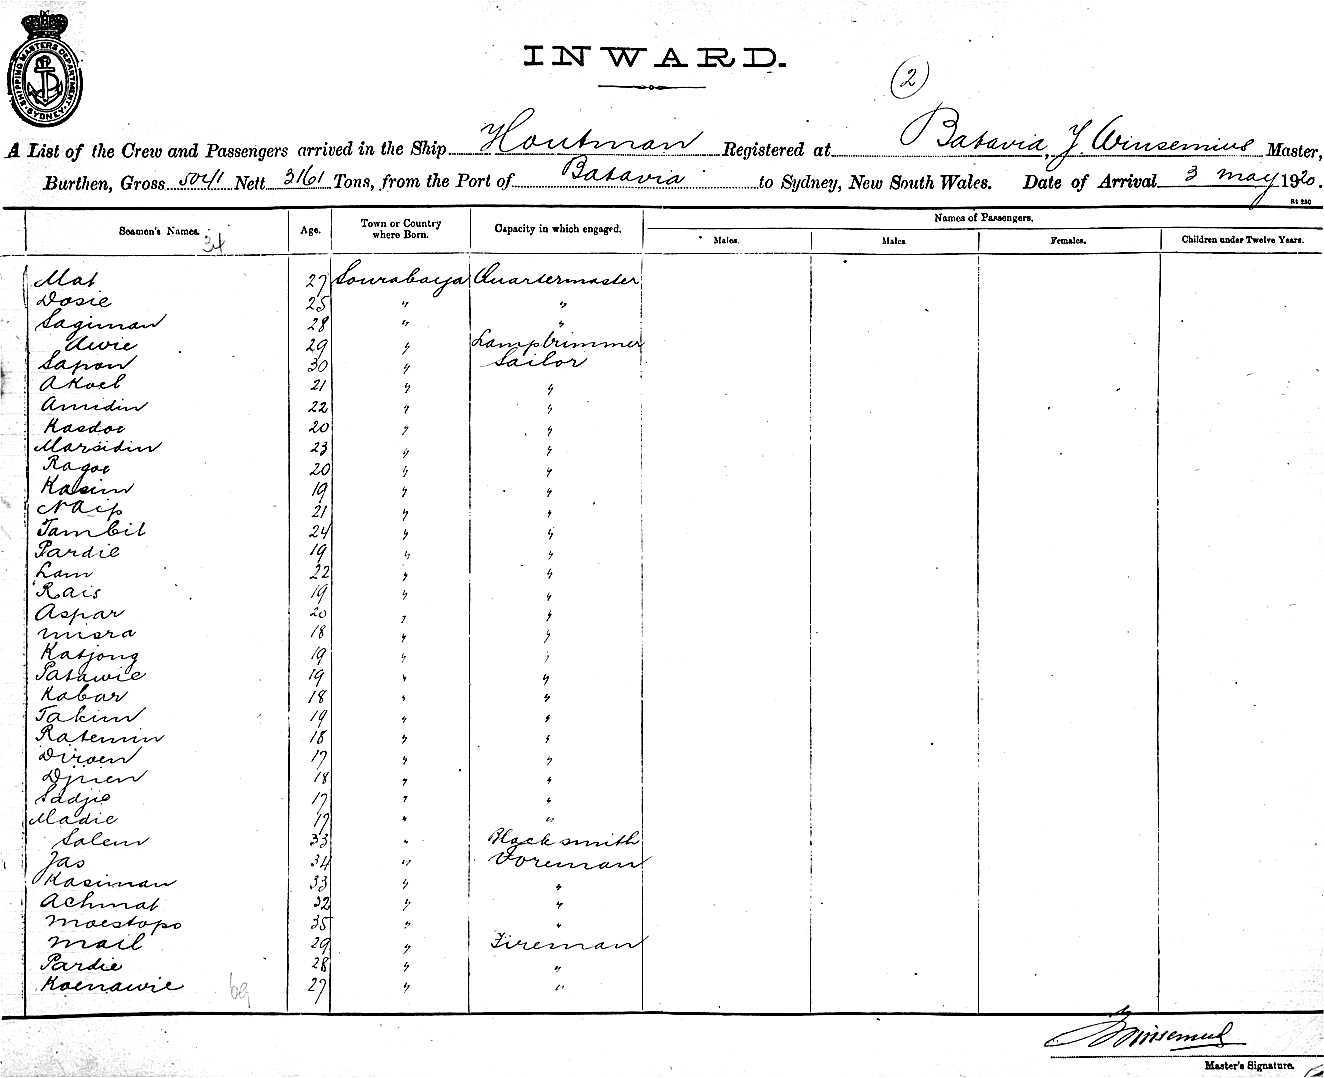 SHIPPING MASTERS DEPARTMENT
SYDNEY
INWARD.
2
A List of the Crew and Passengers arrived in the Ship Houtman Registered at Batavia, J. Winsemius Master,
Burthen, Gross 5041 Nett 3161 Tons, from the Port of Batavia to Sydney, New South Wales. Date of Arrival 3 May 1920.
Names of Passengers.
Seamen's Names. 34 Age. Town or Country where Born. Capacity in which engaged. Males. Males. Females. Children under Twelve Years.
Mat 27 Sourabaya Quartermaster
Dosie 25 " "
Sagiman 28 " "
Awie 29 " Lamptrimmer
Sapon 30 " Sailor
Akoel 21 " "
Amidin 22 " "
Kasdoe 20 " "
Marsidin 23 " "
Ragoe 20 " "
Kasim 19 " "
Naip 21 " "
Tambil 24 " "
Pardie 19 " "
Lam 22 " "
Rais 19 " "
Aspar 20 " "
Misra 18 " "
Katjong 19 " "
Patawie 19 " "
Kabar 18 " "
Takim 19 " "
Ratemin 18 " "
Diroen 17 " "
Djien 18 " "
Sadjie 17 " "
Madie 17 " "
Salem 33 " Blacksmith
Jas 34 " Foreman
Kasiman 33 " "
Achmat 32 " "
Moestopo 35 " "
Mail 29 " Fireman
Pardie 28 " "
Koenawie 27 " "
69
Winsemius
Master's Signature.